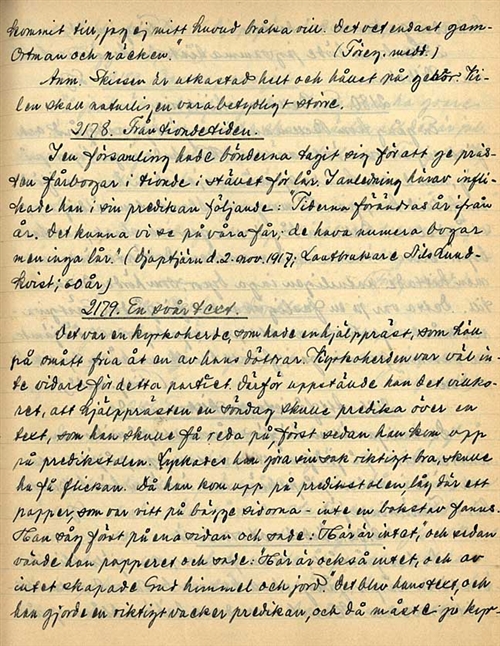 kommit till, jag ej mitt huvud bråka vill. Det vet endast gam-
Ortman och näcken."
(Föreg. medd.)
Anm. Skissen är utkastad helt och hållet på Ki-
len skall naturligen vara betydligt större.
2178. Från tiondetiden.
I en församling hade bönderna tagit sig för att ge präs-
ten fårbogar i tionde i stället för lår. I anledning härav infli-
kade han i sin predikan följande: Tiderna förändras år ifrån
år. Det kunna vi se på våra får; de hava numera bogar
men inga lår." (Djaptjärn d. 2. nov. 1917, Lantbrukare Nils Lund-
kvist; 60 år)
2179. En svår text.
Det var en kyrkoherde, som hade en hjälppräst, som höll
på smått fria åt en av hans döttrar. Kyrkoherden var väl in-
te vidare för detta partiet. Därför uppställde han det villko-
ret, att hjälpprästen en söndag skulle predika över en
text, som han skulle få reda på, först sedan han kom upp
på predikstolen. Lyckades han göra sin sak riktigt bra, skulle
ha få flickan. Då han kom upp på predikstolen, låg där ett
papper, som var vitt på bägge sidorna - inte en bokstav fanns.
Han såg först på ena sidan och sade: "Här är intet", och sedan
vände han papperet och sade: "Här är också intet, och av
intet skapade Gud himmel och jord." Det blev hans text, och
han gjorde en riktigt vacker predikan, och då måste ju kyr-